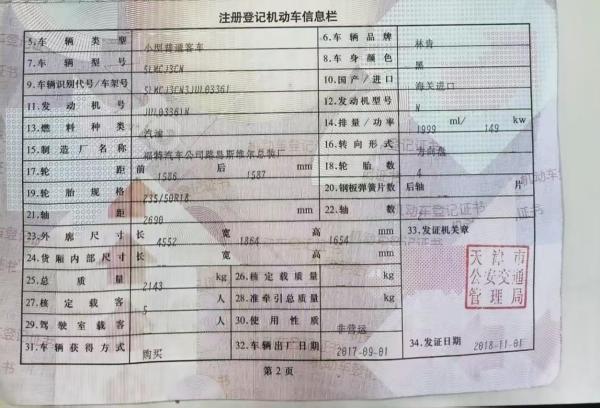 注册登记机动车信息栏
5.车辆类型 小型普通客车 6.车辆品牌 林肯
7.车辆型号 5LMCJ3CN 8.车身颜色 黑
9.车辆识别代号/车架号 10.国产/进口 海关进口
11.发动机号 12.发动机型号 N
13.燃料种类 汽油 14.排量/功率 1999 ml/ 149 kw
15.制造厂名称 福特汽车公司路易斯维尔总装厂 16.转向形式 方向盘
17.轮距 前 1586 后 1587 mm 18.轮胎数 4
19.轮胎规格 235/50R18 20.钢板弹簧片数 后轴 片
21.轴距 2690 mm 22.轴数
23.外廓尺寸 长 4552 宽 1864 高 1654 mm
33.发证机关章
24.货厢内部尺寸 长 宽 高 mm
25.总质量 2143 kg 26.核定载质量 kg
27.核定载客 5 人 28.准牵引总质量 kg
天津市
公安交通
管理局
29.驾驶室载客 人 30.使用性质 非营运
31.车辆获得方式 购买 32.车辆出厂日期 2017-09-01 34.发证日期 2018-11-01
第2页